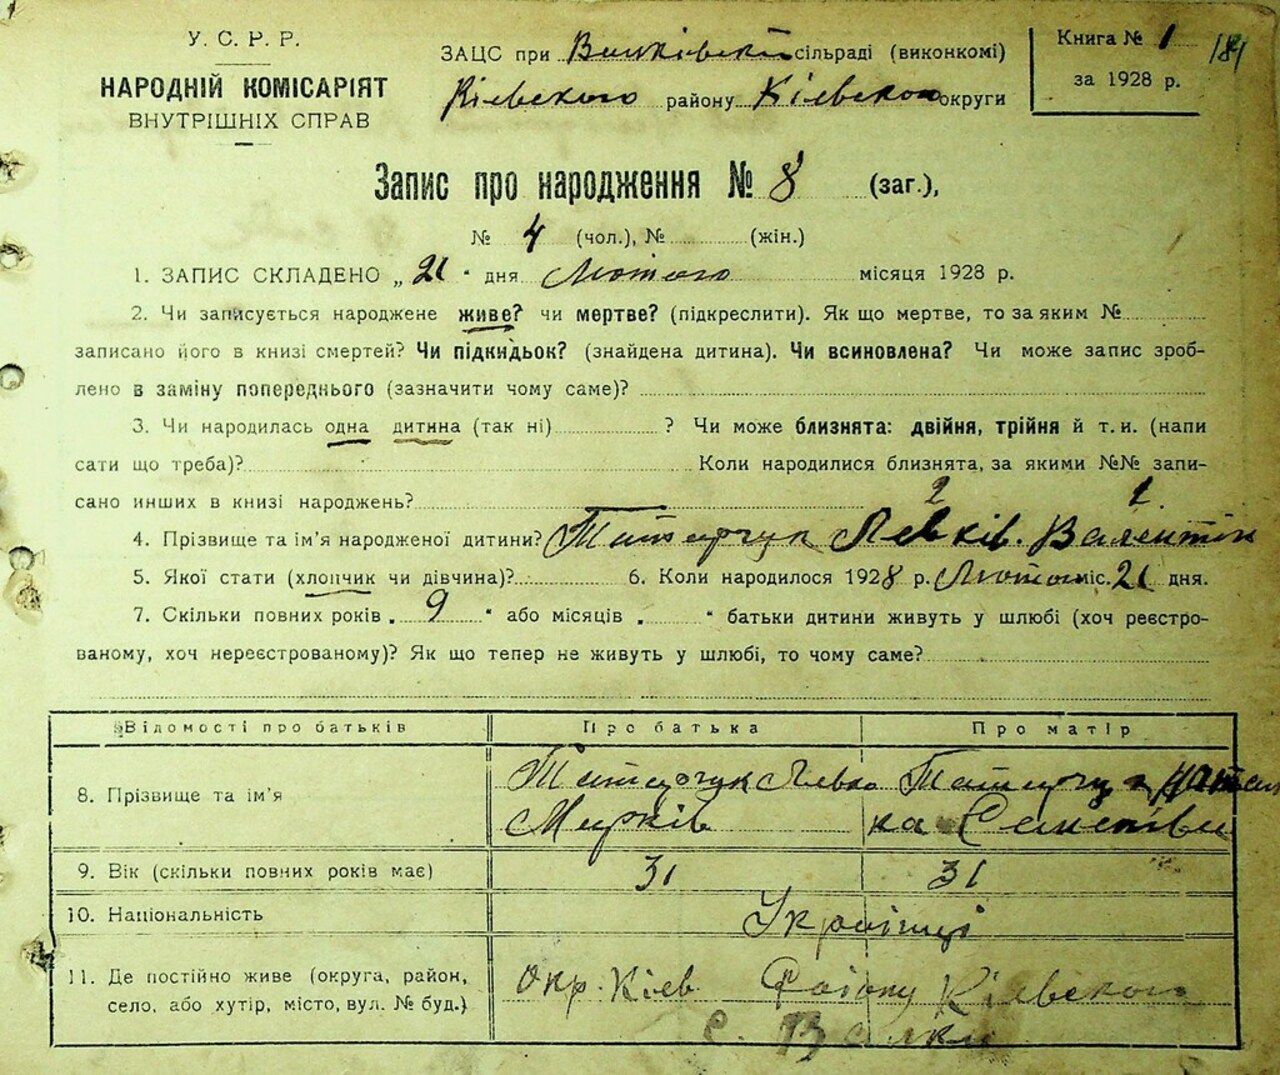 У. С. Р. Р.
НАРОДНІЙ КОМІСАРІЯТ
ВНУТРІШНІХ СПРАВ
ЗАЦС при сільраді (виконкомі)
Кієвского району Кієвского округи
Книга № 1
за 1928 р.
181
Запис про народження № 8 (заг.),
№ 4 (чол.), № (жін.)
1. ЗАПИС СКЛАДЕНО „21“ дня Лютого місяця 1928 р.
2. Чи записується народжене живе? чи мертве? (підкреслити). Як що мертве, то за яким №
записано його в книзі смертей? Чи підкидьок? (знайдена дитина). Чи всиновлена? Чи може запис зроб-
лено в заміну попереднього (зазначити чому саме)?
3. Чи народилась одна дитина (так ні) ? Чи може близнята: двійня, трійня й т. и. (напи
сати що треба)? Коли народилися близнята, за якими №№ запи-
сано инших в книзі народжень?
2 1
4. Прізвище та ім'я народженої дитини? Левків. Валентін
5. Якої стати (хлопчик чи дівчина)? 6. Коли народилося 1928 р. Лютого міс. 21 дня.
7. Скільки повних років „ 9 " або місяців „ " батьки дитини живуть у шлюбі (хоч реєстро-
ваному, хоч нереєстрованому)? Як що тепер не живуть у шлюбі, то чому саме?
Відомості про батьків Про батька Про матір
8. Прізвище та ім'я Левко
Марків ка
9. Вік (скільки повних років має) 31 31
10. Національність Українці
11. Де постійно живе (округа, район, Окр. Кіев Району Кієвского
село, або хутір, місто, вул. № буд.) с.